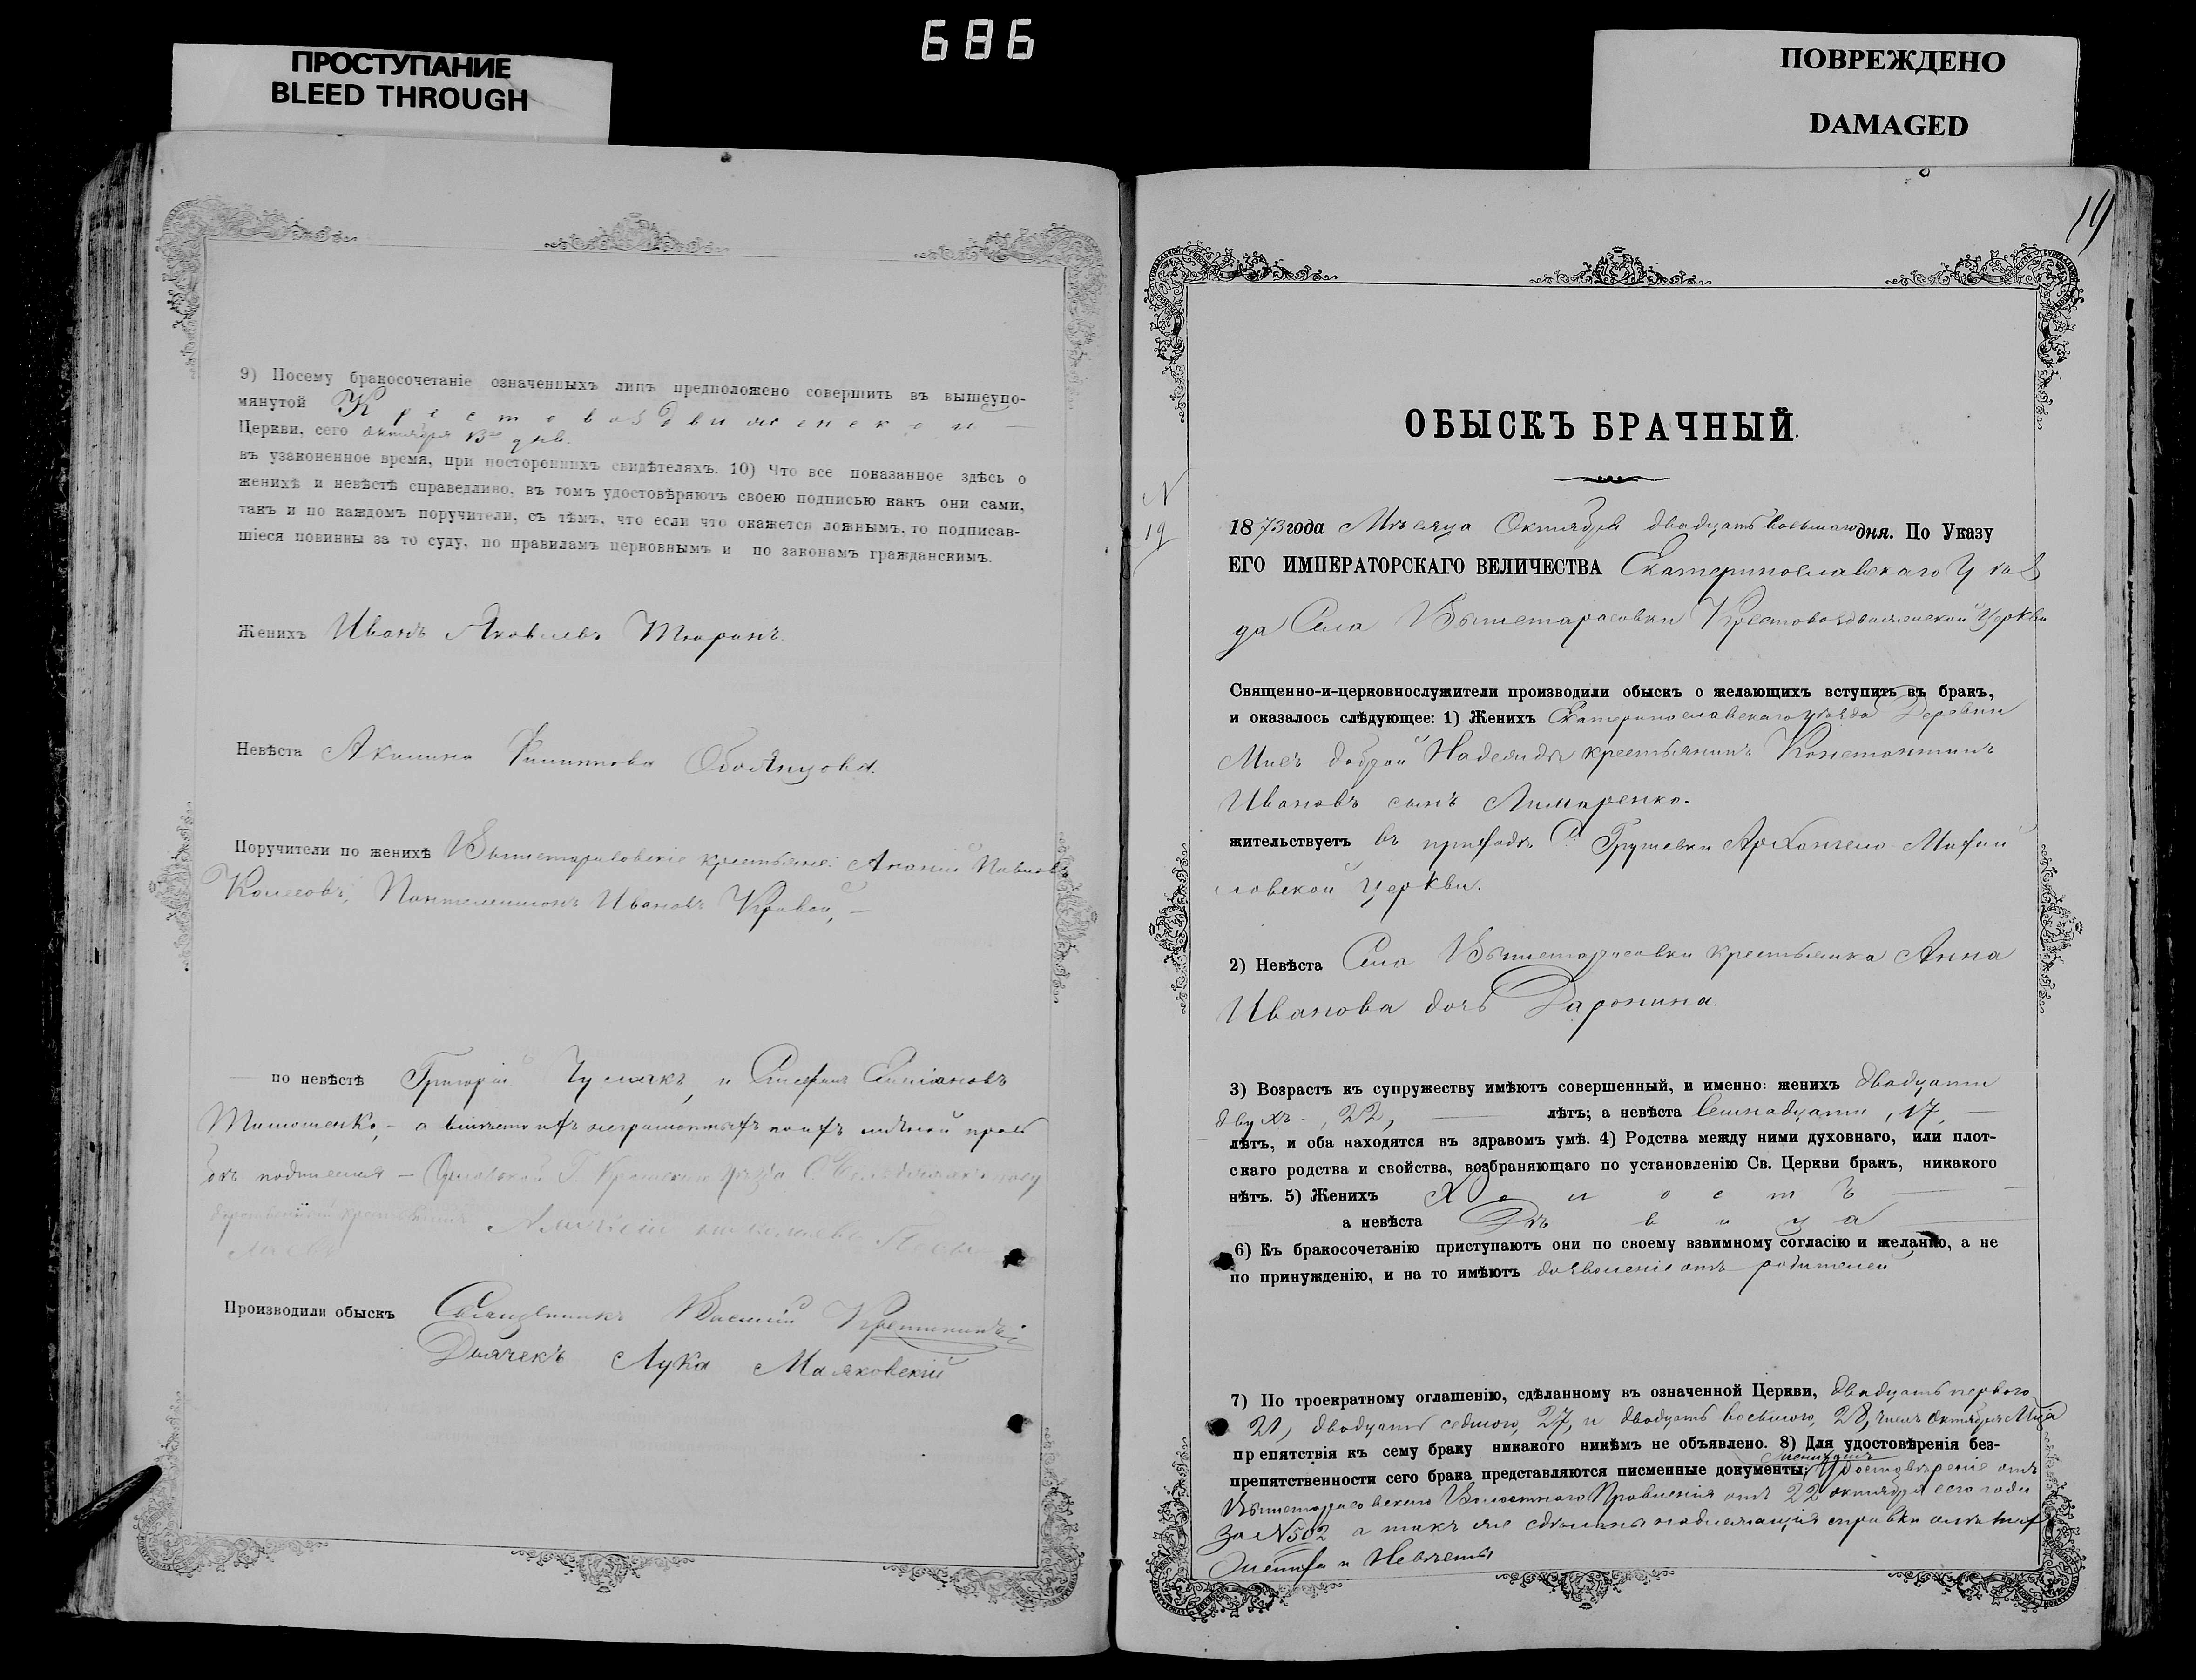 686
ПРОСТУПАНИЕ
BLEED THROUGH
ПОВРЕЖДЕНО
DAMAGED
9) Посему бракосочетаніе означенныхъ лицъ предположено совершить въ вышеупо-
мянутой Крестовоздвиженской
Церкви, сего октября дня.
въ узаконенное время, при постороннихъ свидѣтеляхъ. 10) Что все показанное здѣсь о
женихѣ и невѣстѣ справедливо, въ томъ удостовѣряютъ своею подписью какъ они сами,
такъ и по каждомъ поручители, съ тѣмъ, что если что окажется ложнымъ, то подписав-
шіеся повинны за то суду, по правиламъ церковнымъ и по законамъ гражданскимъ.
Женихъ Иванъ Яковлевъ Тюринъ
Невѣста Акилина Филиппова
Поручители по женихѣ Вышетарасовскіе крестьяне: Ананій
Пантелеимонъ Ивановъ Кривой,
по невѣстѣ Григорій Чумакъ, и Стефанъ
Тимошенко, – а вмѣсто ихъ неграмотныхъ по ихъ личной прось
бѣ
Производили обыскъ Священникъ Василій
Дьячекъ Лука Маяковскій
19
ОБЫСКЪ БРАЧНЫЙ.
N
19
1873 года Мѣсяца Октября двадцать восьмаго дня. По Указу
ЕГО ИМПЕРАТОРСКАГО ВЕЛИЧЕСТВА Екатеринославскаго Уѣз
да Села Вышетарасовки Крестовоздвиженской Церкви
Священно-и-церковнослужители производили обыскъ о желающихъ вступить въ бракъ,
и оказалось слѣдующее: 1) Женихъ Екатеринославскаго уѣзда Деревни
Мысъ доброй Надежды крестьянинъ Константинъ
Ивановъ сынъ Лимаренко.
жительствуетъ въ приходѣ С. Грушевки Архангело-Михаи
ловской Церкви.
2) Невѣста Села Вышетарасовки крестьянка Анна
Иванова дочь Даронина.
3) Возрастъ къ супружеству имѣютъ совершенный, и именно: женихъ двадцати
двухъ, 22, лѣтъ; а невѣста семнадцати, 17,
лѣтъ, и оба находятся въ здравомъ умѣ. 4) Родства между ними духовнаго, или плот-
скаго родства и свойства, возбраняющаго по установленію Св. Церкви бракъ, никакого
нѣтъ. 5) Женихъ Холостъ
а невѣста Дѣвица
6) Къ бракосочетанію приступаютъ они по своему взаимному согласію и желанію, а не
по принужденію, и на то имѣютъ дозволеніе отъ родителей
7) По троекратному оглашенію, сдѣланному въ означенной Церкви, двадцать перваго
21, двадцать седьмого, 27, и двадцать восьмого, 28, чиселъ Октября Мца
пр епятствія къ сему браку никакого никѣмъ не объявлено. 8) Для удостовѣренія без-
препятственности сего брака представляются писменные документы: женихомъ Удостовѣреніе отъ
Вышетарасовскаго Волостнаго Правленія отъ 22 октября сего года
за N 502 а такъ же сдѣланы надлежащія справки о лѣтахъ
Жениха и Невѣсты